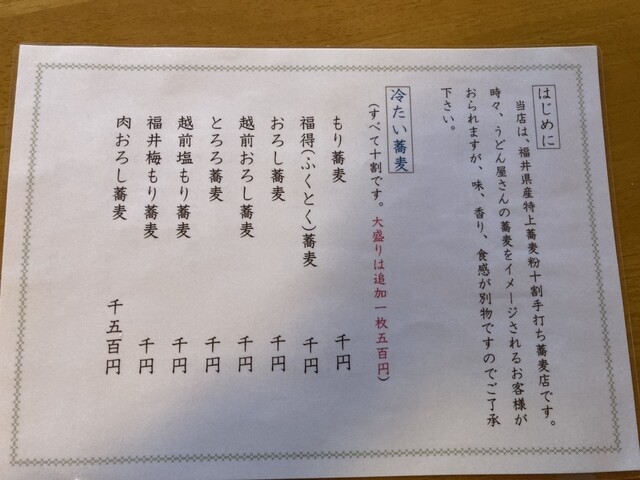 はじめに
当店は、福井県産特上蕎麦粉十割手打ち蕎麦店です。
時々、うどん屋さんの蕎麦をイメージされるお客様が
おられますが、味、香り、食感が別物ですのでご了承
下さい。
冷たい蕎麦
(すべて十割です。大盛りは追加一枚五百円)
もり蕎麦 千円
福得(ふくとく)蕎麦 千円
おろし蕎麦 千円
越前おろし蕎麦 千円
とろろ蕎麦 千円
越前塩もり蕎麦 千円
福井梅もり蕎麦 千円
肉おろし蕎麦 千五百円